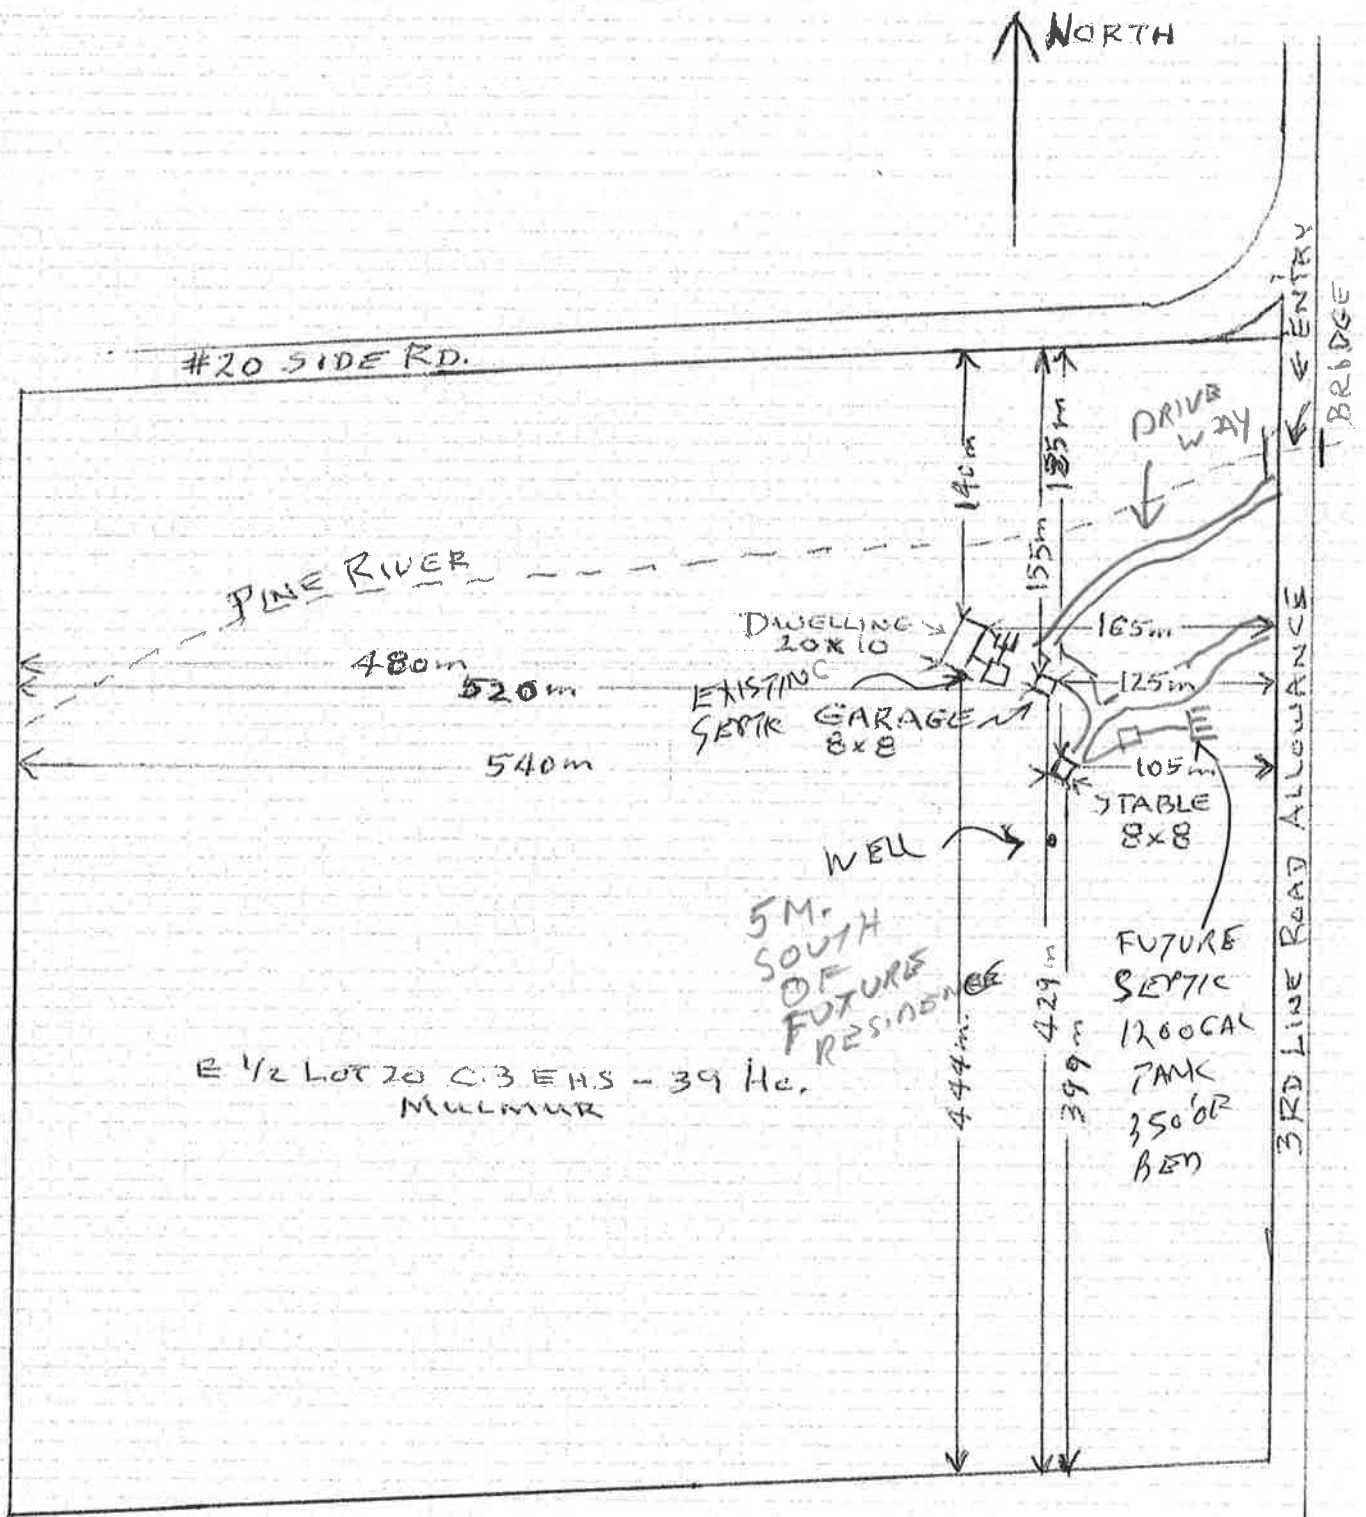 NORTH
ENTRY
BRIDGE
#20 SIDE RD.
DRIVE
WAY
140m
155m
185m
PINE RIVER
DWELLING
20x10
165m
480m
520m
EXISTING
SEPTIC
GARAGE
8x8
125m
540m
105m
STABLE
8x8
WELL
5 M.
SOUTH
OF
FUTURE
RESIDENCE
444m.
429m
399m
FUTURE
SEPTIC
1200GAL
TANK
350'
BED
3RD LINE ROAD ALLOWANCE
E 1/2 LOT 20 C.3 EHS - 39 Ha.
MULMUR